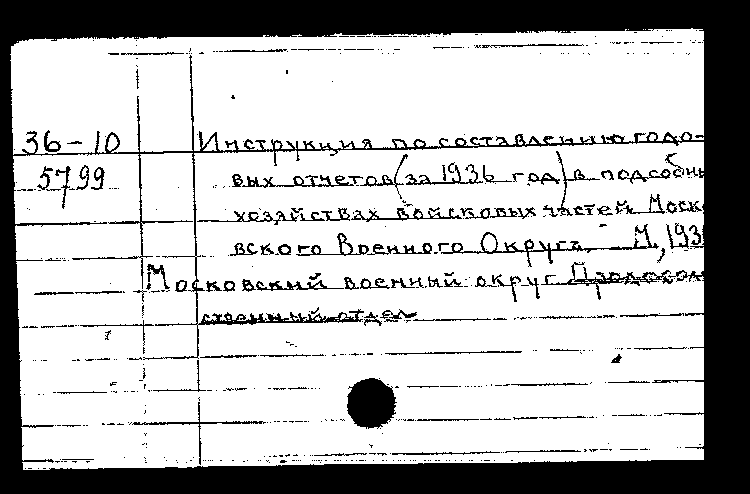 36-10 Инструкция по составлению годо-
5799 вых отчетов (за 1936 год) в подсобны
хозяйствах войсковых частей Моск
вского Военного Округа. - М., 193
Московский военный округ Продоволь
ственный отдел